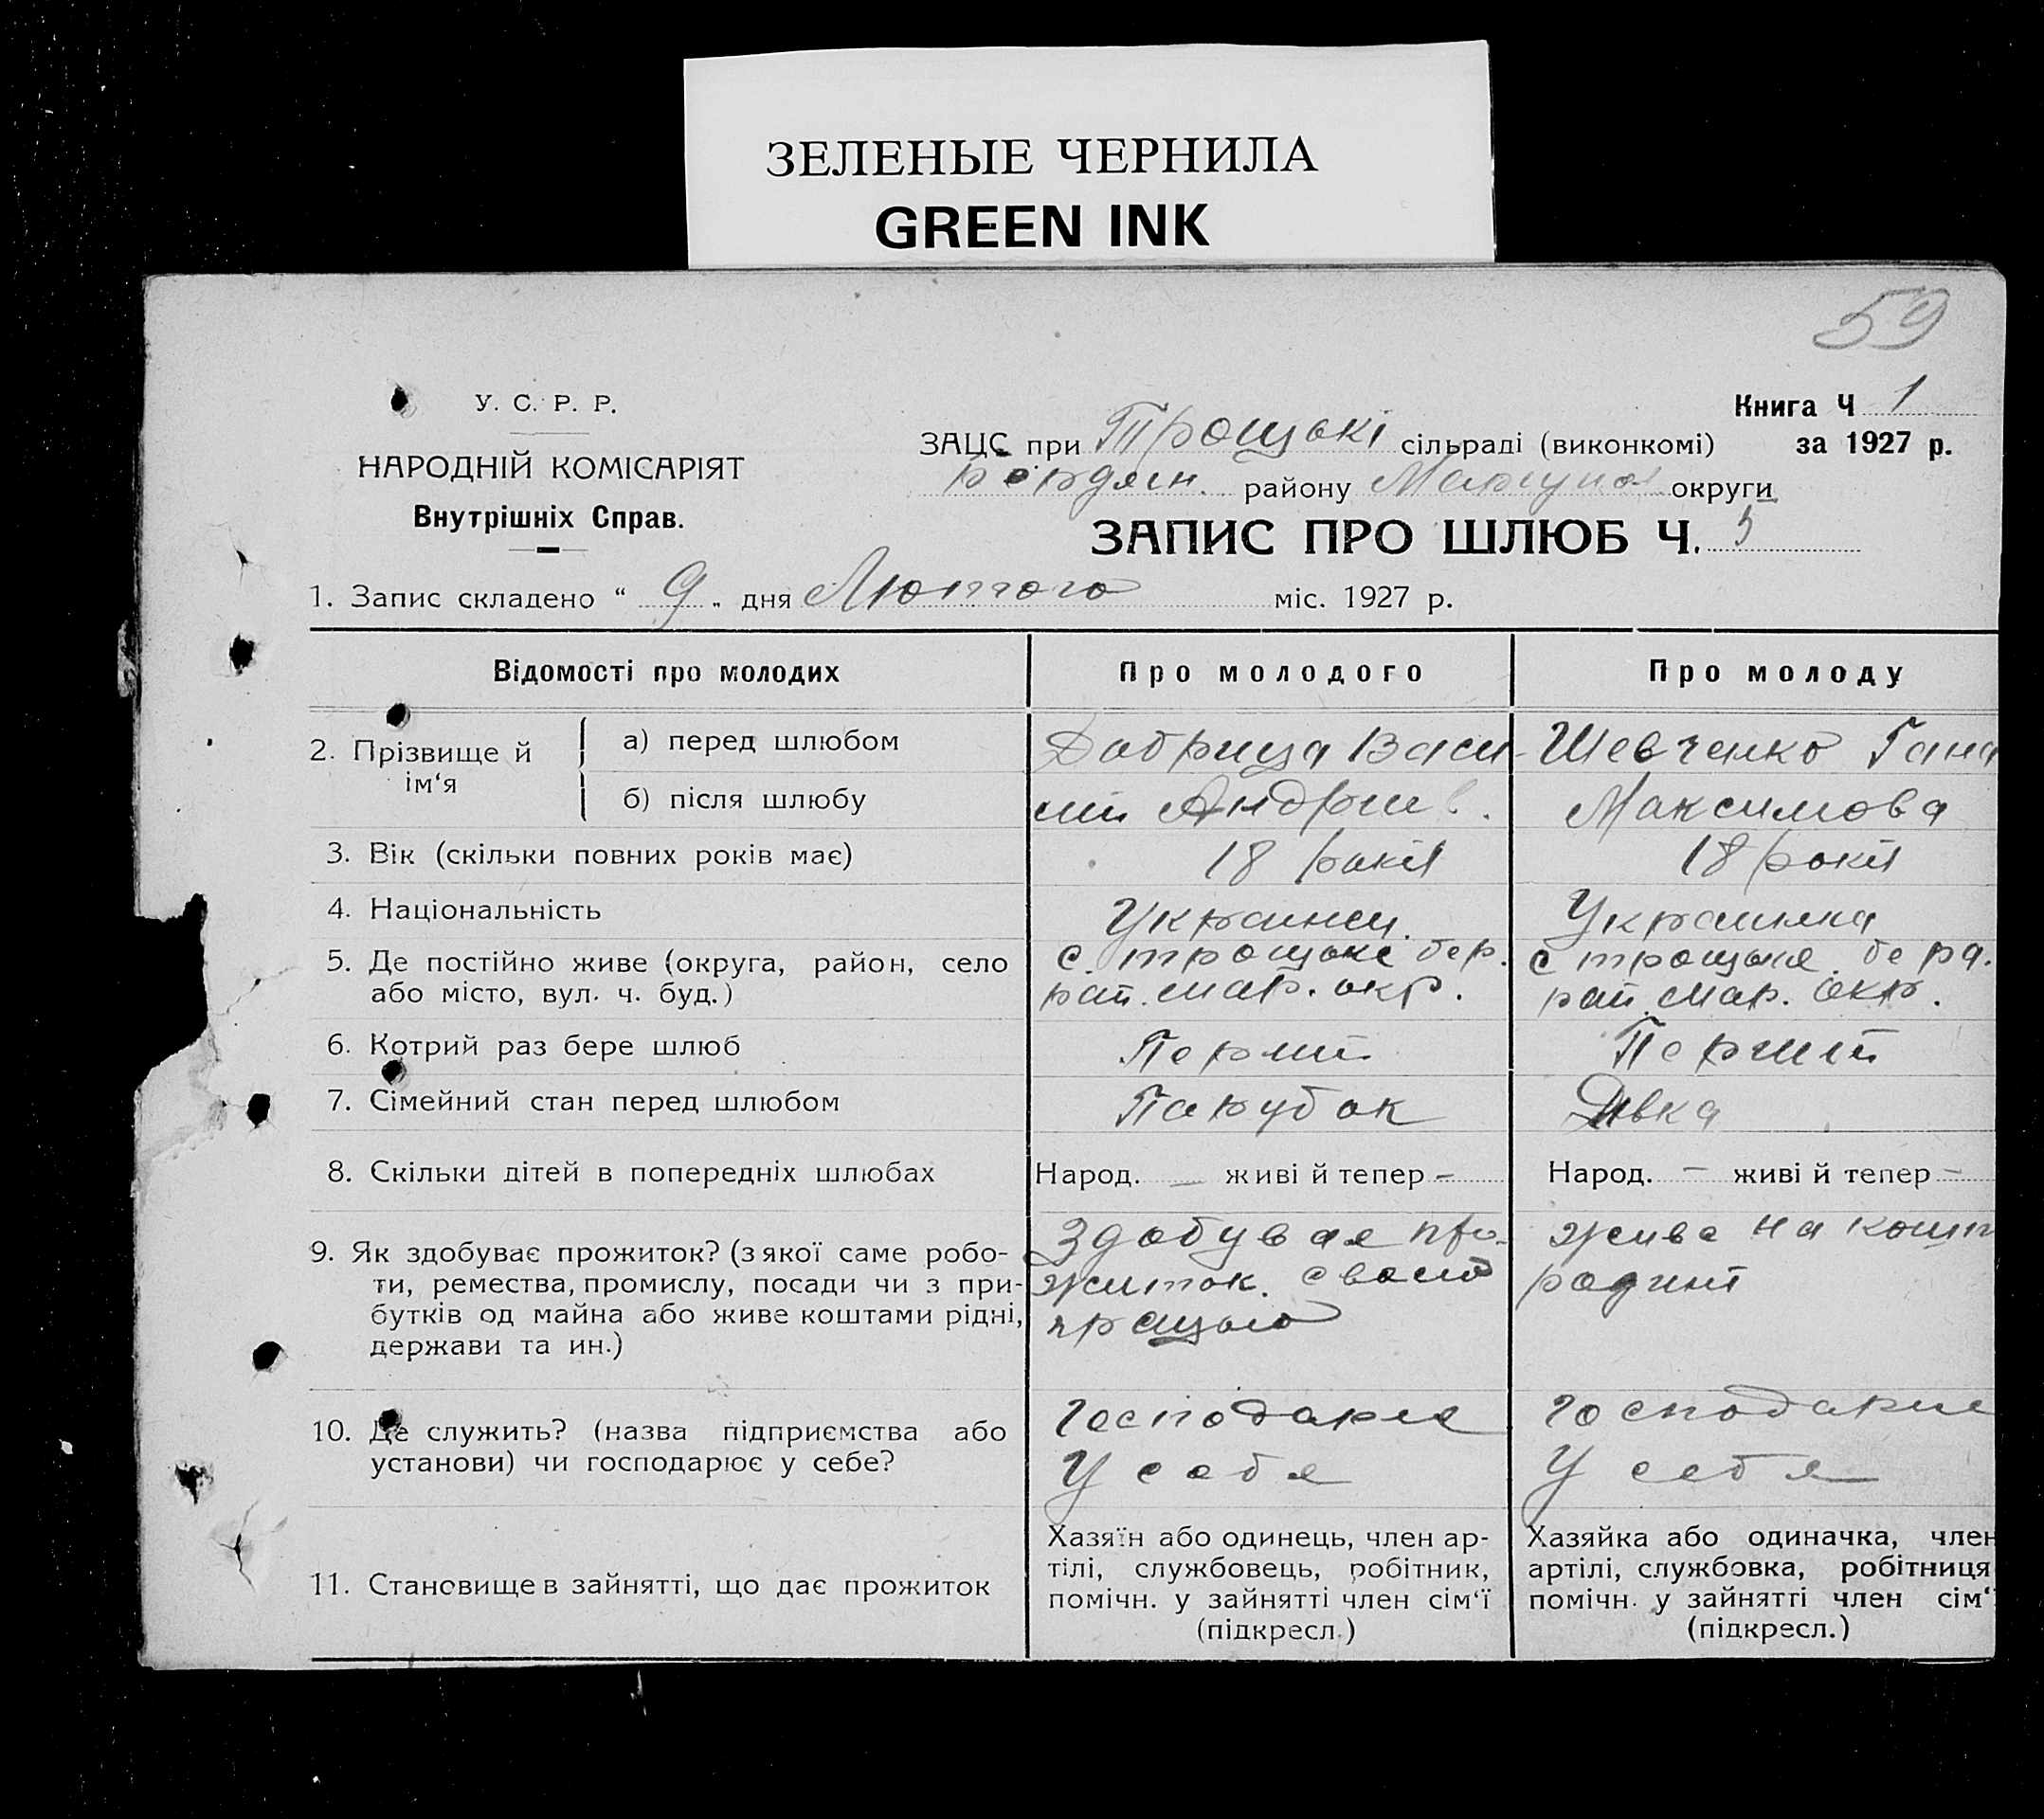 ЗЕЛЕНЫЕ ЧЕРНИЛА
GREEN INK
59
У. С. Р. Р.
НАРОДНІЙ КОМІСАРІЯТ
Внутрішніх Справ.
Книга Ч 1
ЗАЦС при Трощькі сільраді (виконкомі) за 1927 р.
району округи
ЗАПИС ПРО ШЛЮБ Ч. 5
1. Запис складено “ 9 „ дня Лютого міс. 1927 р.
Відомості про молодих
Про молодого
Про молоду
2. Прізвище й ім‘я
а) перед шлюбом
Добрица Васи-
Шевченко Гана
б) після шлюбу
лій Андриев.
Максимова
3. Вік (скільки повних років має)
18 років
18 років
4. Національність
Украинец.
Украинка
5. Де постійно живе (округа, район, село
або місто, вул. ч. буд.)
с. трощьке бер.
рай. мар. окр.
с трощькя берд.
рай. мар. окр.
6. Котрий раз бере шлюб
Перший
Перший
7. Сімейний стан перед шлюбом
Парубок
Дівка
8. Скільки дітей в попередніх шлюбах
Народ. — живі й тепер –
Народ. – живі й тепер –
9. Як здобуває прожиток? (з якої саме робо-
ти, ремества, промислу, посади чи з при-
бутків од майна або живе коштами рідні,
держави та ин.)
Здобувая про-
житок. своею
працьою
живе на кошт
родині
10. Де служить? (назва підприємства або
установи) чи господарює у себе?
Господарює
У себя
господарює
У себя
11. Становище в зайнятті, що дає прожиток
Хазяїн або одинець, член ар-
тілі, службовець, робітник,
помічн. у зайнятті член сім‘ї
(підкресл.)
Хазяйка або одиначка, член
артілі, службовка, робітниця
помічн. у зайнятті член сім‘ї
(підкресл.)